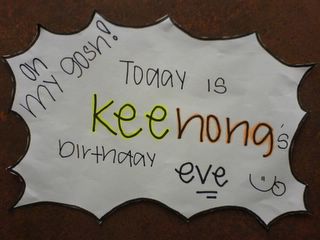 oh my gosh!
Today is
keenong's
birthday
eve